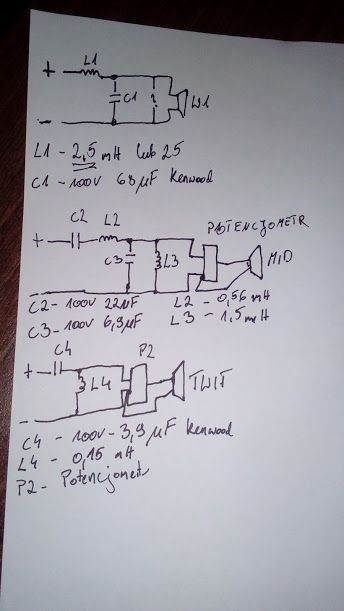 L1
+
C1
?
W1
-
L1 - 2,5 mH lub 25
C1 - 100V 68µF Kenwood
C2 L2 POTENCJOMETR
+
C3 L3 MID
-
C2 - 100V 22µF L2 - 0,56 mH
C3 - 100V 6,9µF L3 - 1,5 mH
C4 P2
+
L4 TWIT
-
C4 - 100V - 3,9µF Kenwood
L4 - 0,15 mH
P2 - Potencjometr